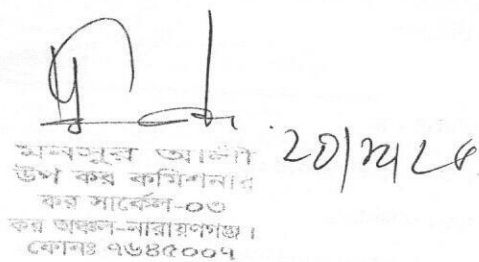 মনসুর আলী
উপ কর কমিশনার
কর সার্কেল-০৩
কর অঞ্চল-নারায়ণগঞ্জ।
ফোনঃ ৭৬৪৫০০৭